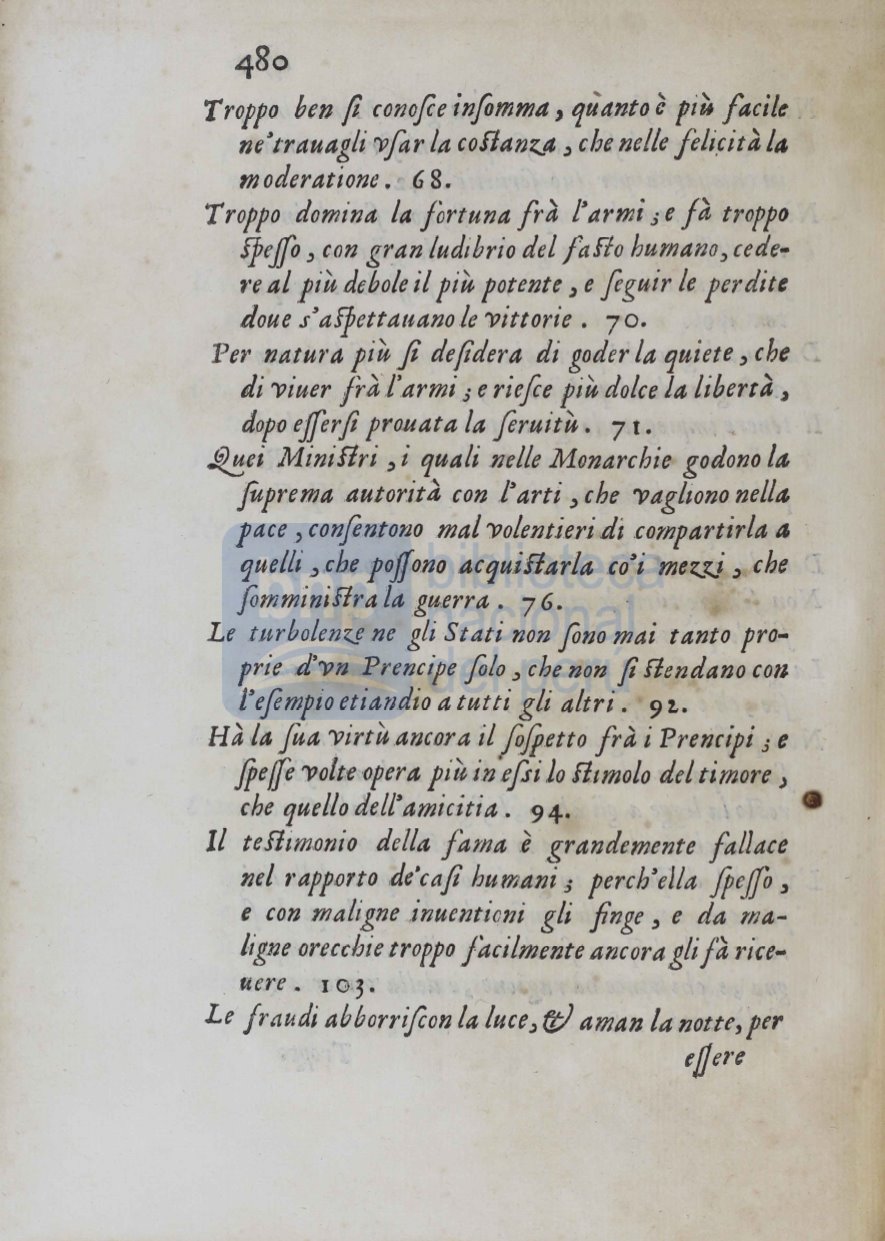 480
Troppo ben ſi conoſce inſomma, quanto è più facile
ne'trauagli vſar la coſtanza, che nelle felicità la
moderatione. 68.
Troppo domina la fortuna frà l'armi; e fà troppo
ſpeſſo, con gran ludibrio del faſto humano, cede-
re al più debole il più potente, e ſeguir le perdite
doue s'aſpettauano le vittorie. 70.
Per natura più ſi deſidera di goder la quiete, che
di viuer frà l'armi; e rieſce più dolce la libertà,
dopo eſſerſi prouata la ſeruitù. 71.
Quei Miniſtri, i quali nelle Monarchie godono la
ſuprema autorità con l'arti, che vagliono nella
pace, conſentono mal volentieri di compartirla a
quelli, che poſſono acquiſtarla co'i mezzi, che
ſomminiſtra la guerra. 76.
Le turbolenze ne gli Stati non ſono mai tanto pro-
prie d'vn Prencipe ſolo, che non ſi ſtendano con
l'eſempio etiandio a tutti gli altri. 92.
Hà la ſua virtù ancora il ſoſpetto frà i Prencipi; e
ſpeſſe volte opera più in eſsi lo ſtimolo del timore,
che quello dell'amicitia. 94.
Il teſtimonio della fama è grandemente fallace
nel rapporto de'caſi humani; perch'ella ſpeſſo,
e con maligne inuentioni gli finge, e da ma-
ligne orecchie troppo facilmente ancora gli fà rice-
uere. 103.
Le fraudi abborriſcon la luce, & aman la notte, per
eſſere
biblioteca
nacional